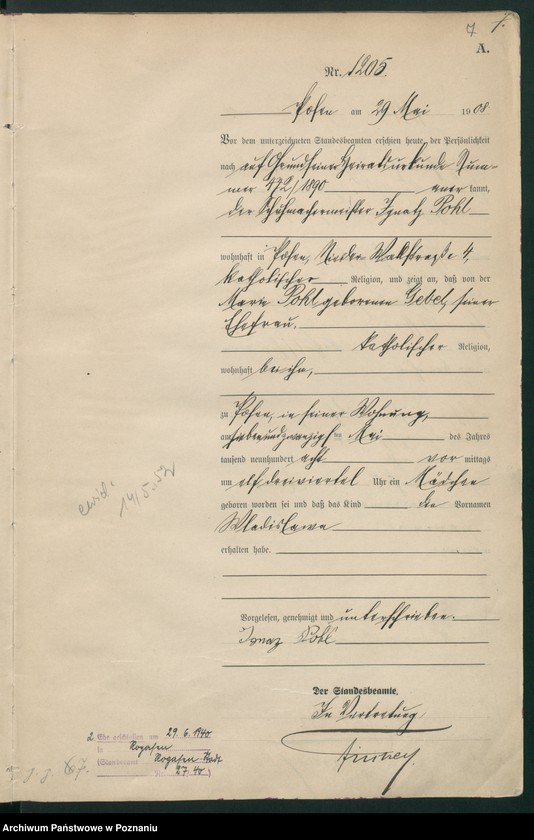 7 1.
A.
Nr. 1205.
Posen am 29 Mai 1908
Vor dem unterzeichneten Standesbeamten erschien heute, der Persönlichkeit
nach auf Grund seiner Heiratsurkunde Num-
mer 172/1890 aner kannt,
der Schuhmachermeister Ignatz Pohl
wohnhaft in Posen, Nieder Wallstraße 4,
katholischer Religion, und zeigt an, daß von der
Marie Pohl geborenen Gebel, seiner
Ehefrau,
katholischer Religion,
wohnhaft bei ihm,
zu Posen, in seiner Wohnung,
am siebenundzwanzigsten Mai des Jahres
tausend neunhundert acht vor mittags
um elf dreiviertel Uhr ein Mädchen
geboren worden sei und daß das Kind die Vornamen
Wladislawa
erhalten habe.
14/5.52
Vorgelesen, genehmigt und unterschrieben.
Ignaz Pohl
Der Standesbeamte.
In Vertretung
2. Ehe geschlossen am 29.6.1940
in Rogasen
(Standesamt Rogasen-Stadt
Nr. 27.40)
Archiwum Państwowe w Poznaniu